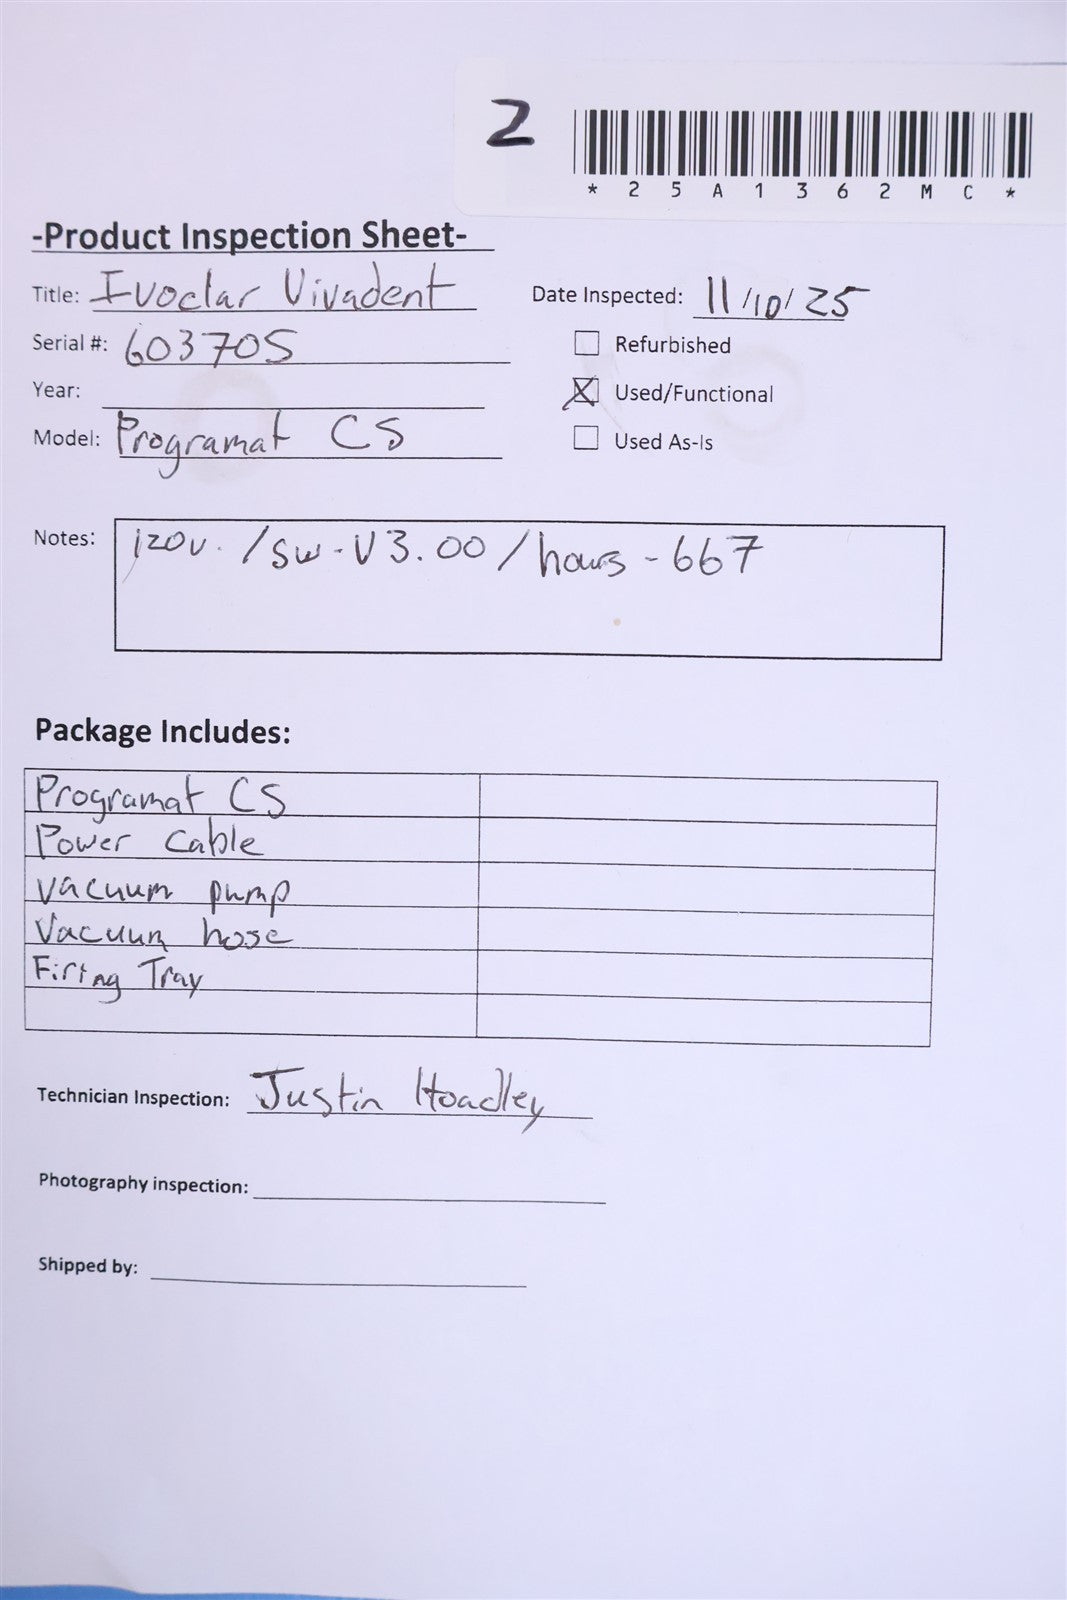 2
*25A1362MC*
-Product Inspection Sheet-
Title: Ivoclar Vivadent
Date Inspected: 11/10/25
Serial #: 603705
Refurbished
Year:
Used/Functional
Model: Programat CS
Used As-Is
Notes: 120v. / sw - V3.00 / hours - 667
Package Includes:
Programat CS
Power Cable
Vacuum pump
Vacuum hose
Firing Tray
Technician Inspection: Justin Hoadley
Photography inspection:
Shipped by: